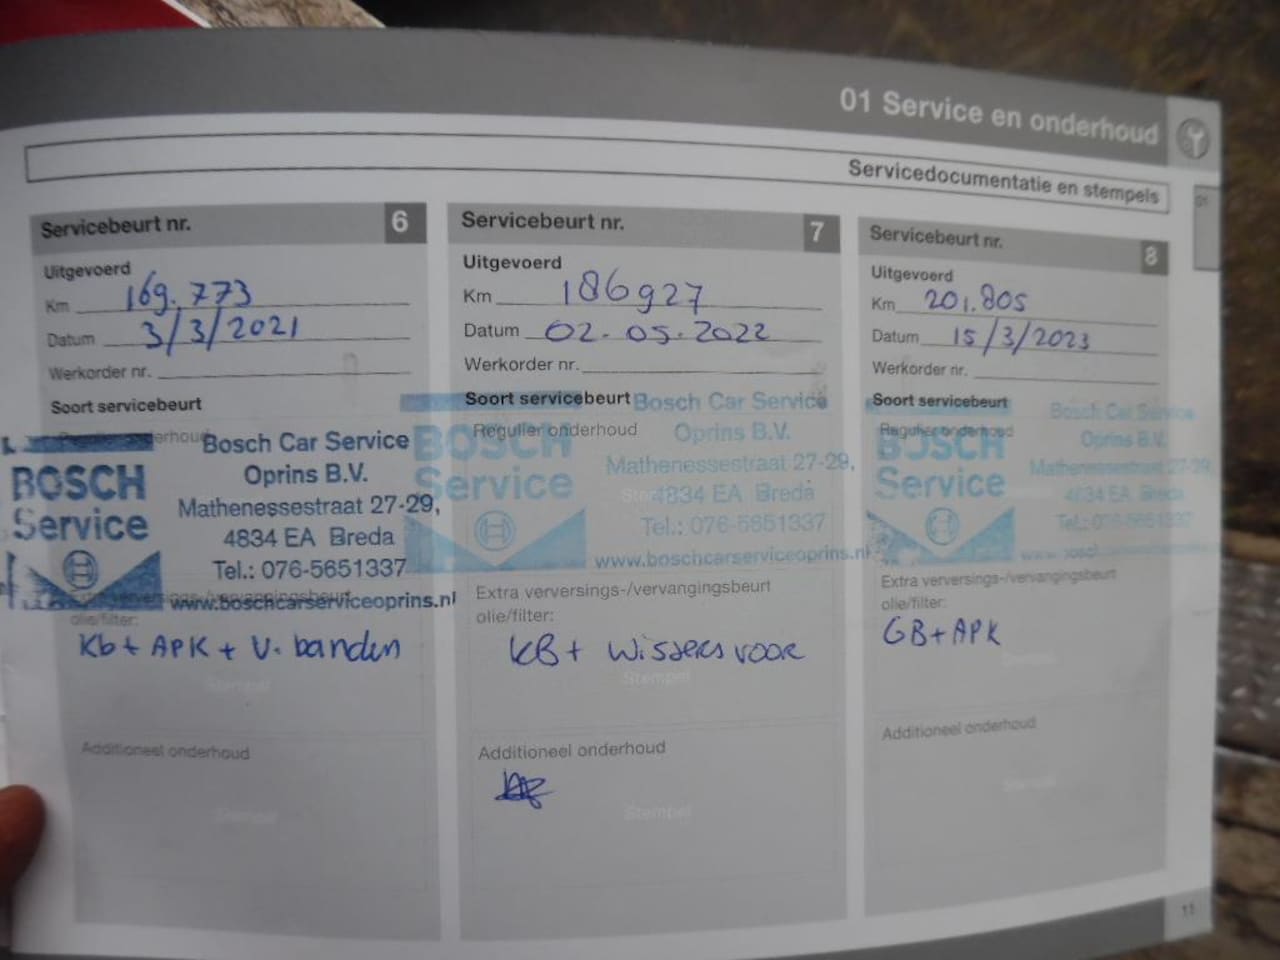 01 Service en onderhoud
Servicedocumentatie en stempels
01
Servicebeurt nr. 6
Uitgevoerd
Km 169.773
Datum 3/3/2021
Werkorder nr.
Soort servicebeurt
Bosch Car Service
Oprins B.V.
Mathenessestraat 27-29,
4834 EA Breda
Tel.: 076-5651337
www.boschcarserviceoprins.nl
BOSCH
Service
olie/filter:
Kb + APK + V. banden
Stempel
Additioneel onderhoud
Stempel
Servicebeurt nr. 7
Uitgevoerd
Km 186927
Datum 02-05-2022
Werkorder nr.
Soort servicebeurt
Regulier onderhoud
Bosch Car Service
Oprins B.V.
Mathenessestraat 27-29,
4834 EA Breda
Tel.: 076-5651337
www.boschcarserviceoprins.nl
BOSCH
Service
Extra verversings-/vervangingsbeurt
olie/filter:
KB + wissers voor
Stempel
Additioneel onderhoud
Stempel
Servicebeurt nr. 8
Uitgevoerd
Km 201.805
Datum 15/3/2023
Werkorder nr.
Soort servicebeurt
Regulier onderhoud
Bosch Car Service
Oprins B.V.
Mathenessestraat 27-29,
4834 EA Breda
Tel.: 076-5651337
BOSCH
Service
Extra verversings-/vervangingsbeurt
olie/filter:
GB + APK
Stempel
Additioneel onderhoud
Stempel
11